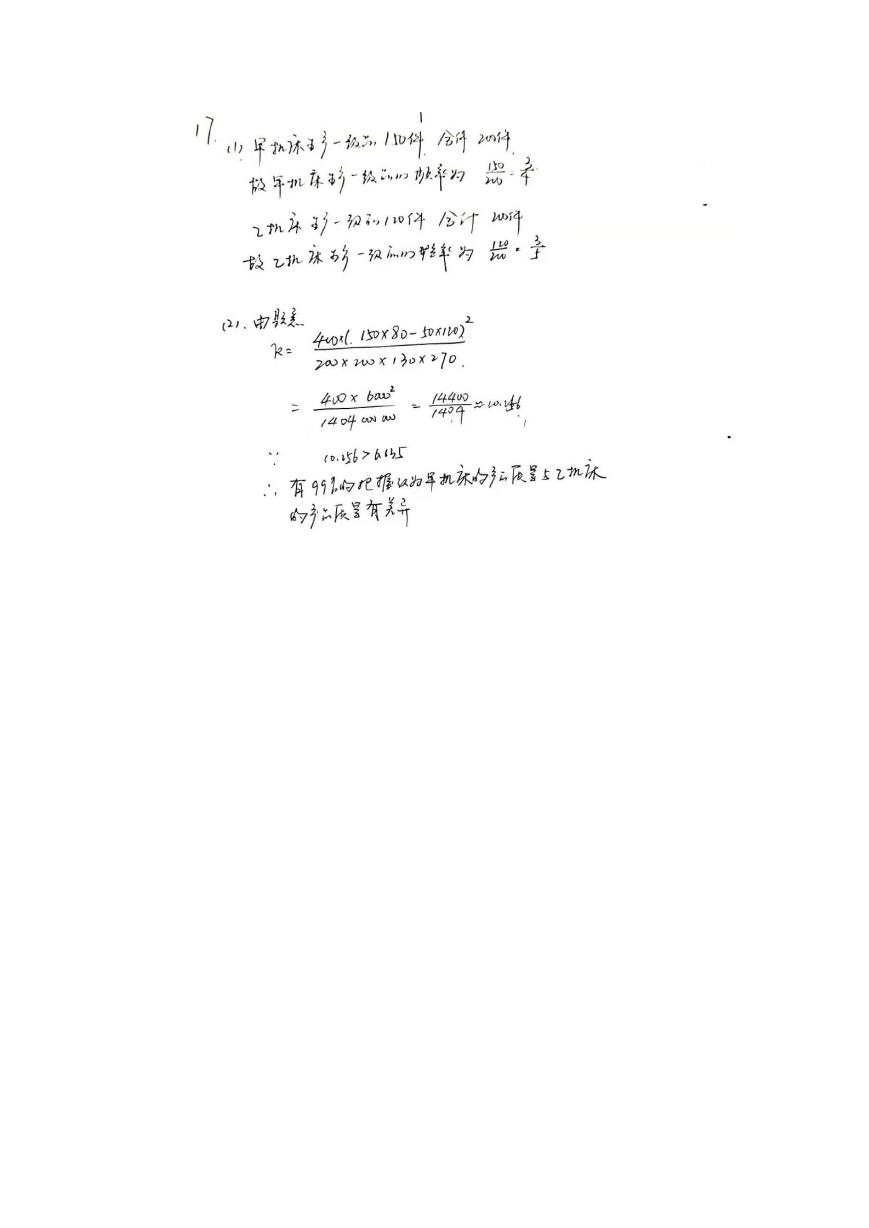 17.
(1). 甲机床生产一级品150件 合计 200件
故甲机床生产一级品的频率为 150/200 = 3/4
乙机床生产一级品120件 合计 200件
故乙机床生产一级品的频率为 120/200 = 3/5
(2). 由题意
k = 400×(150×80-50×120)²/200×200×130×270
= 400×6000²/140400000 = 14400/1404 ≈ 10.256
∵ 10.256>6.635
∴ 有99%的把握认为甲机床的产品质量与乙机床
的产品质量有差异